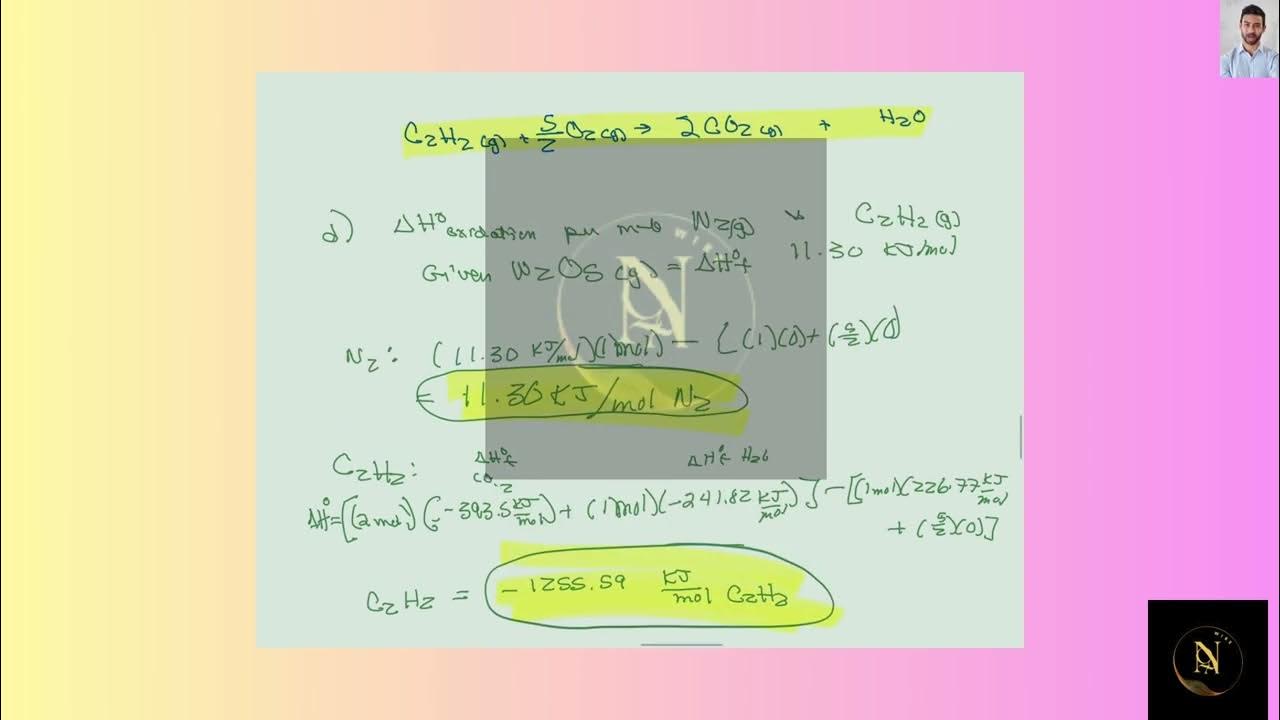 C2H2(g) + 5/2 O2(g) → 2CO2(g) + H2O
d) ΔH° oxidation per mol N2(g) C2H2(g)
Given N2O5(g) = ΔH°f 11.30 KJ/mol
N2: (11.30 KJ/mol)(1mol) - [(1)(0) + (5/2)(0)
= 11.30 KJ/mol N2
C2H2: ΔH°f CO2 ΔH°f H2O
ΔH° = [(2mol)(-393.5 KJ/mol) + (1mol)(-241.82 KJ/mol)] - [(1mol)(226.77 KJ/mol
+ (5/2)(0)]
C2H2 = -1255.59 KJ/mol C2H2